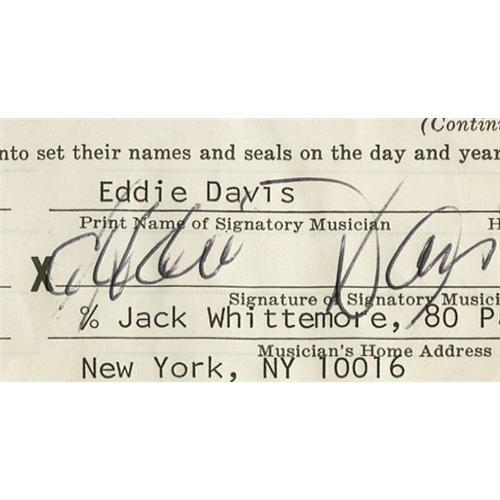 (Contin
nto set their names and seals on the day and year
Eddie Davis
Print Name of Signatory Musician H
X Eddie Davis
Signature of Signatory Musici
% Jack Whittemore, 80 P
Musician's Home Address
New York, NY 10016